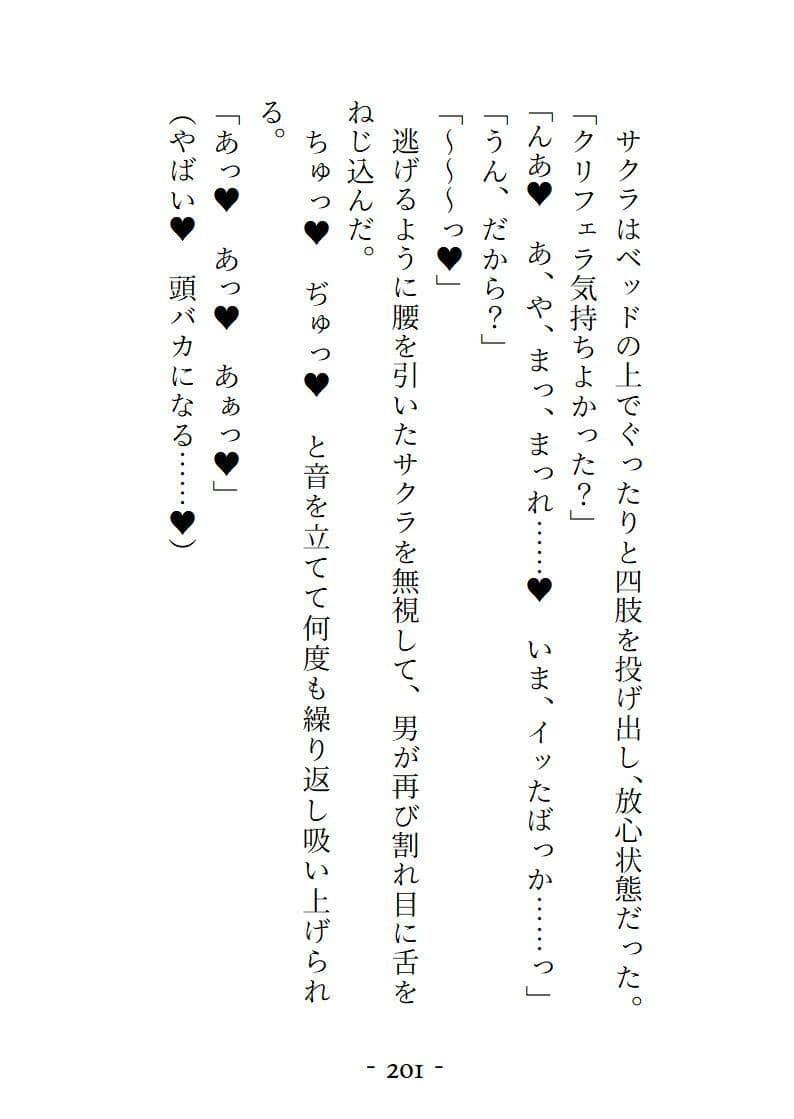 サクラはベッドの上でぐったりと四肢を投げ出し、放心状態だった。
「クリフェラ気持ちよかった？」
「んあ♥　あ、や、まっ、まっれ……♥　いま、イッたばっか……っ」
「うん、だから？」
「～～～っ♥」
逃げるように腰を引いたサクラを無視して、男が再び割れ目に舌を
ねじ込んだ。
ちゅっ♥　ぢゅっ♥　と音を立てて何度も繰り返し吸い上げられ
る。
「あっ♥　あっ♥　あぁっ♥」
（やばい♥　頭バカになる……♥）
- 201 -